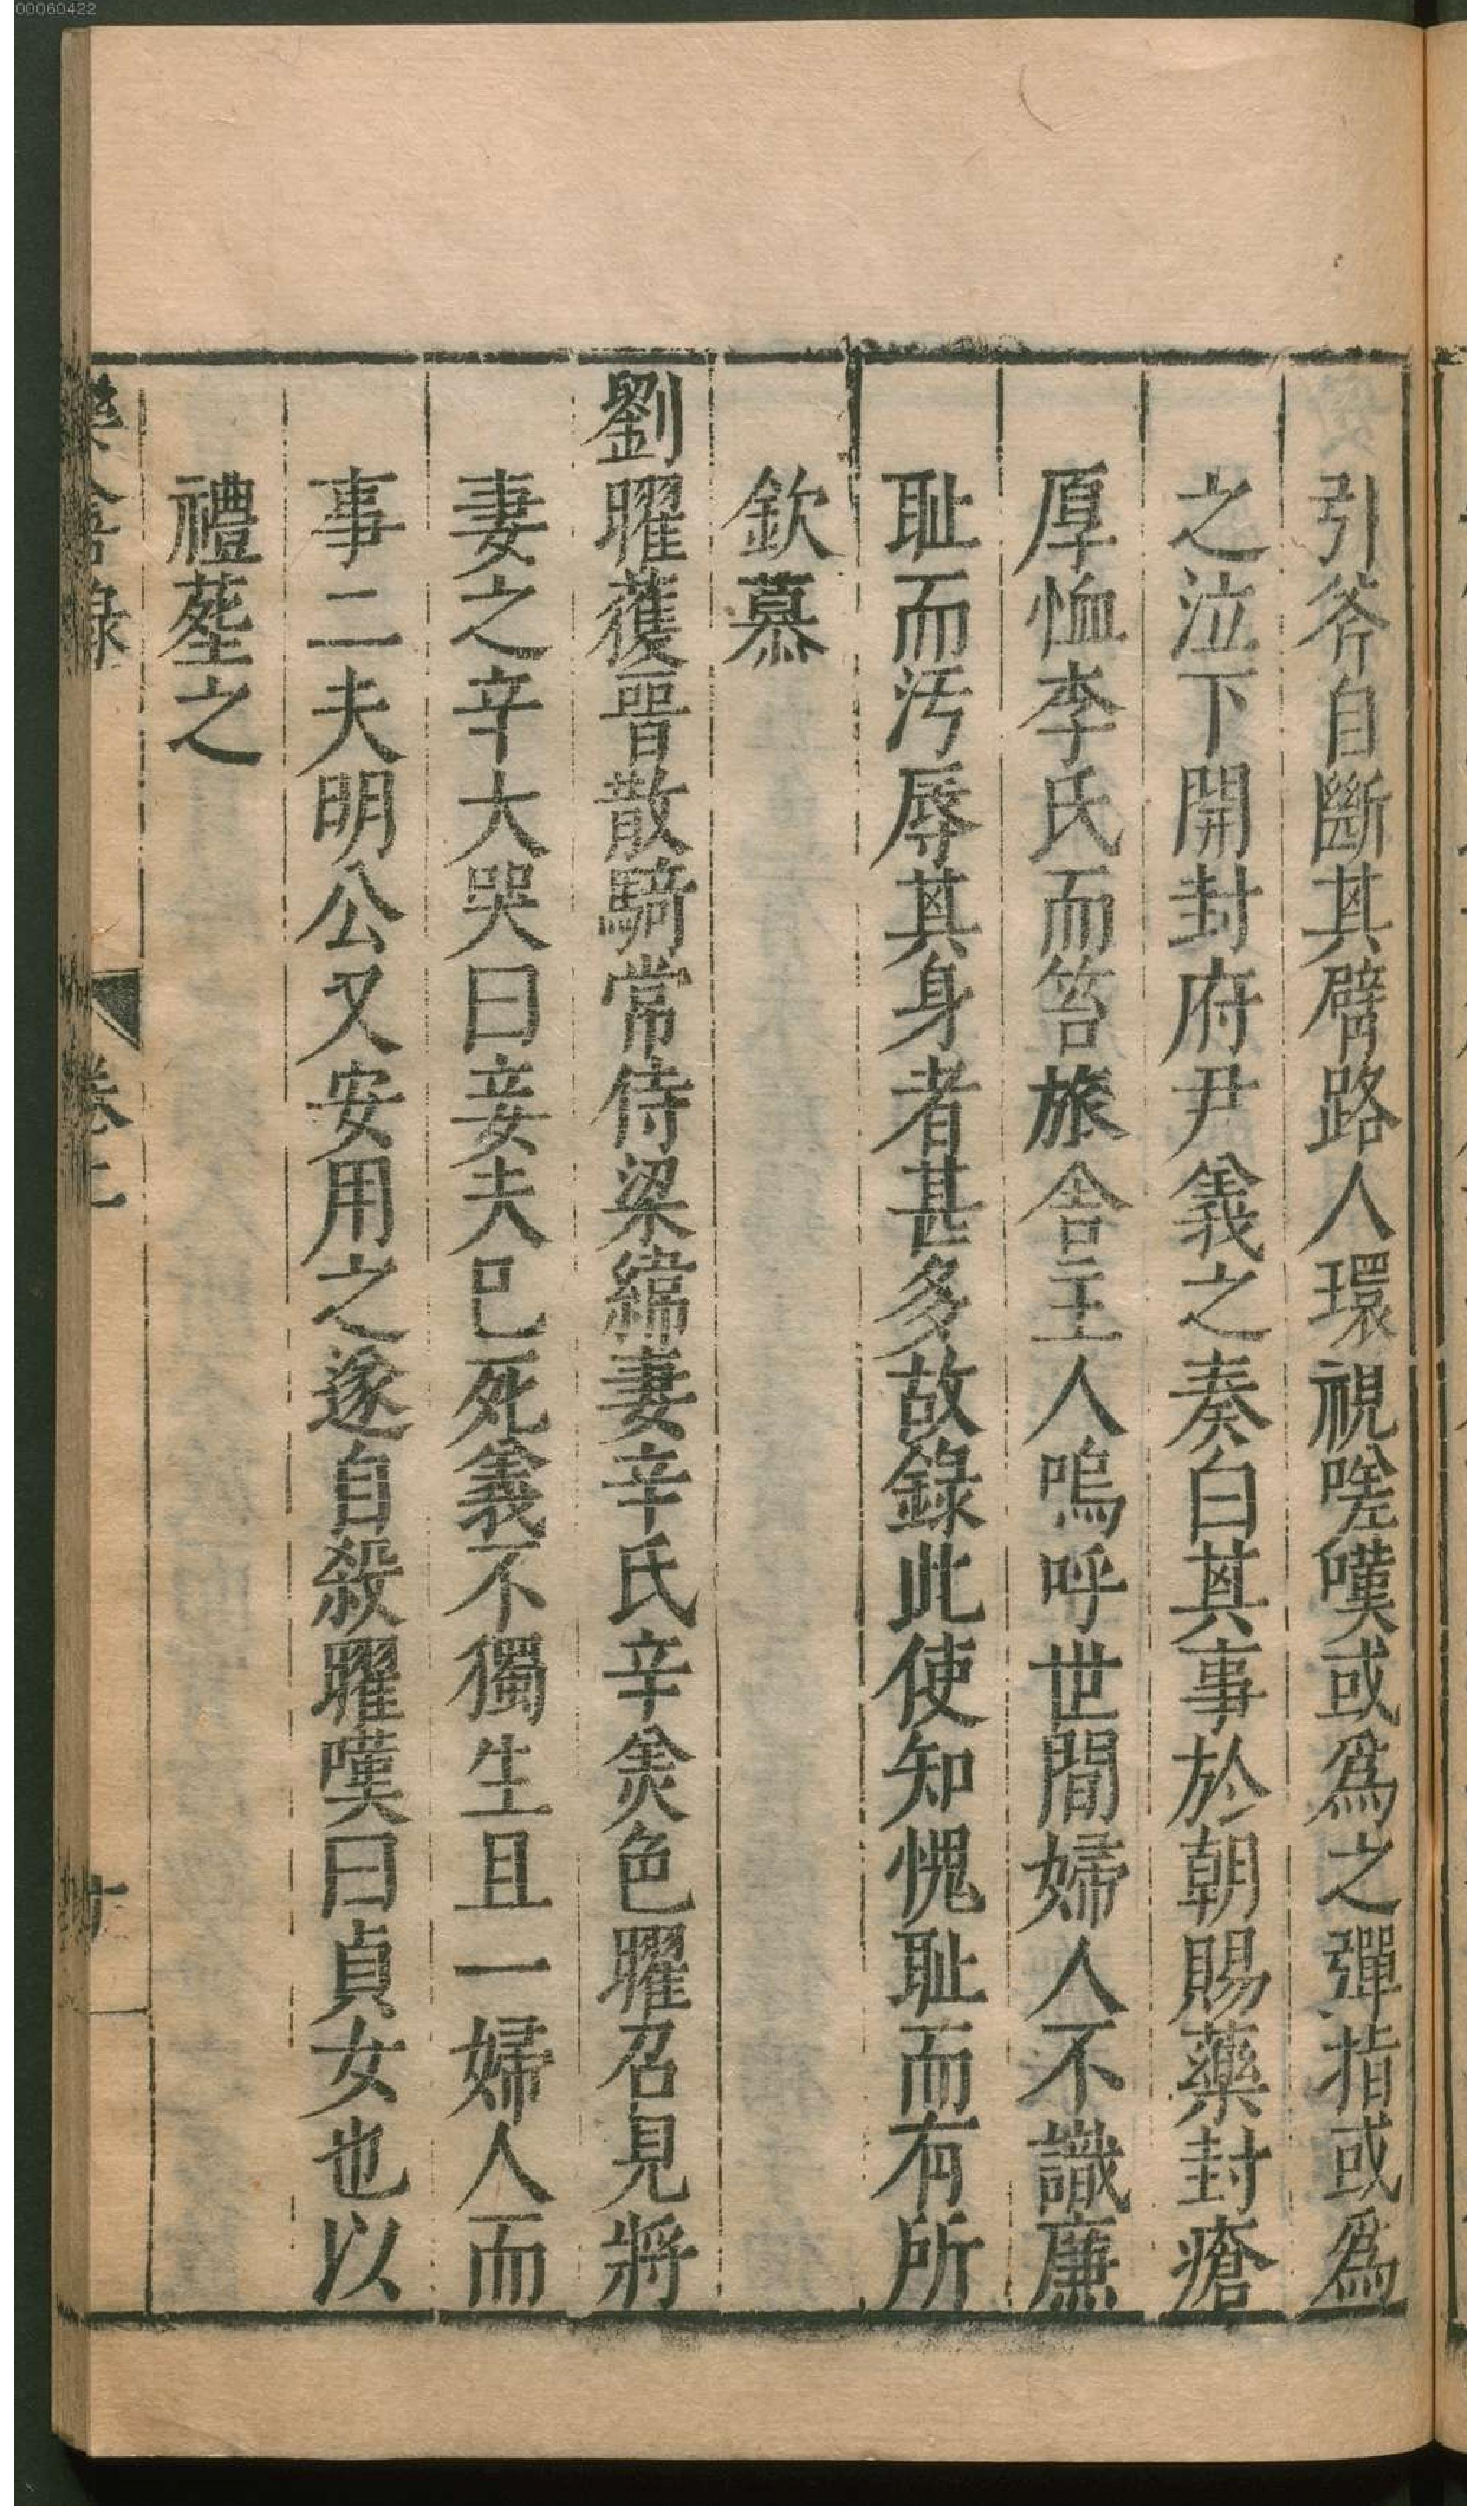 00060422
引斧自斷其臂路人環視嗟嘆或爲之彈指或爲
之泣下開封府尹義之奏白其事於朝賜藥封瘡
厚恤李氏而笞旅舍主人嗚呼世間婦人不識廉
耻而汚辱其身者甚多故錄此使知愧耻而有所
欽慕
劉曜獲晉散騎常侍梁緯妻辛氏辛美色曜召見將
妻之辛大哭曰妾夫已死義不獨生且一婦人而
事二夫明公又安用之遂自殺曜嘆曰貞女也以
禮塟之
卷二